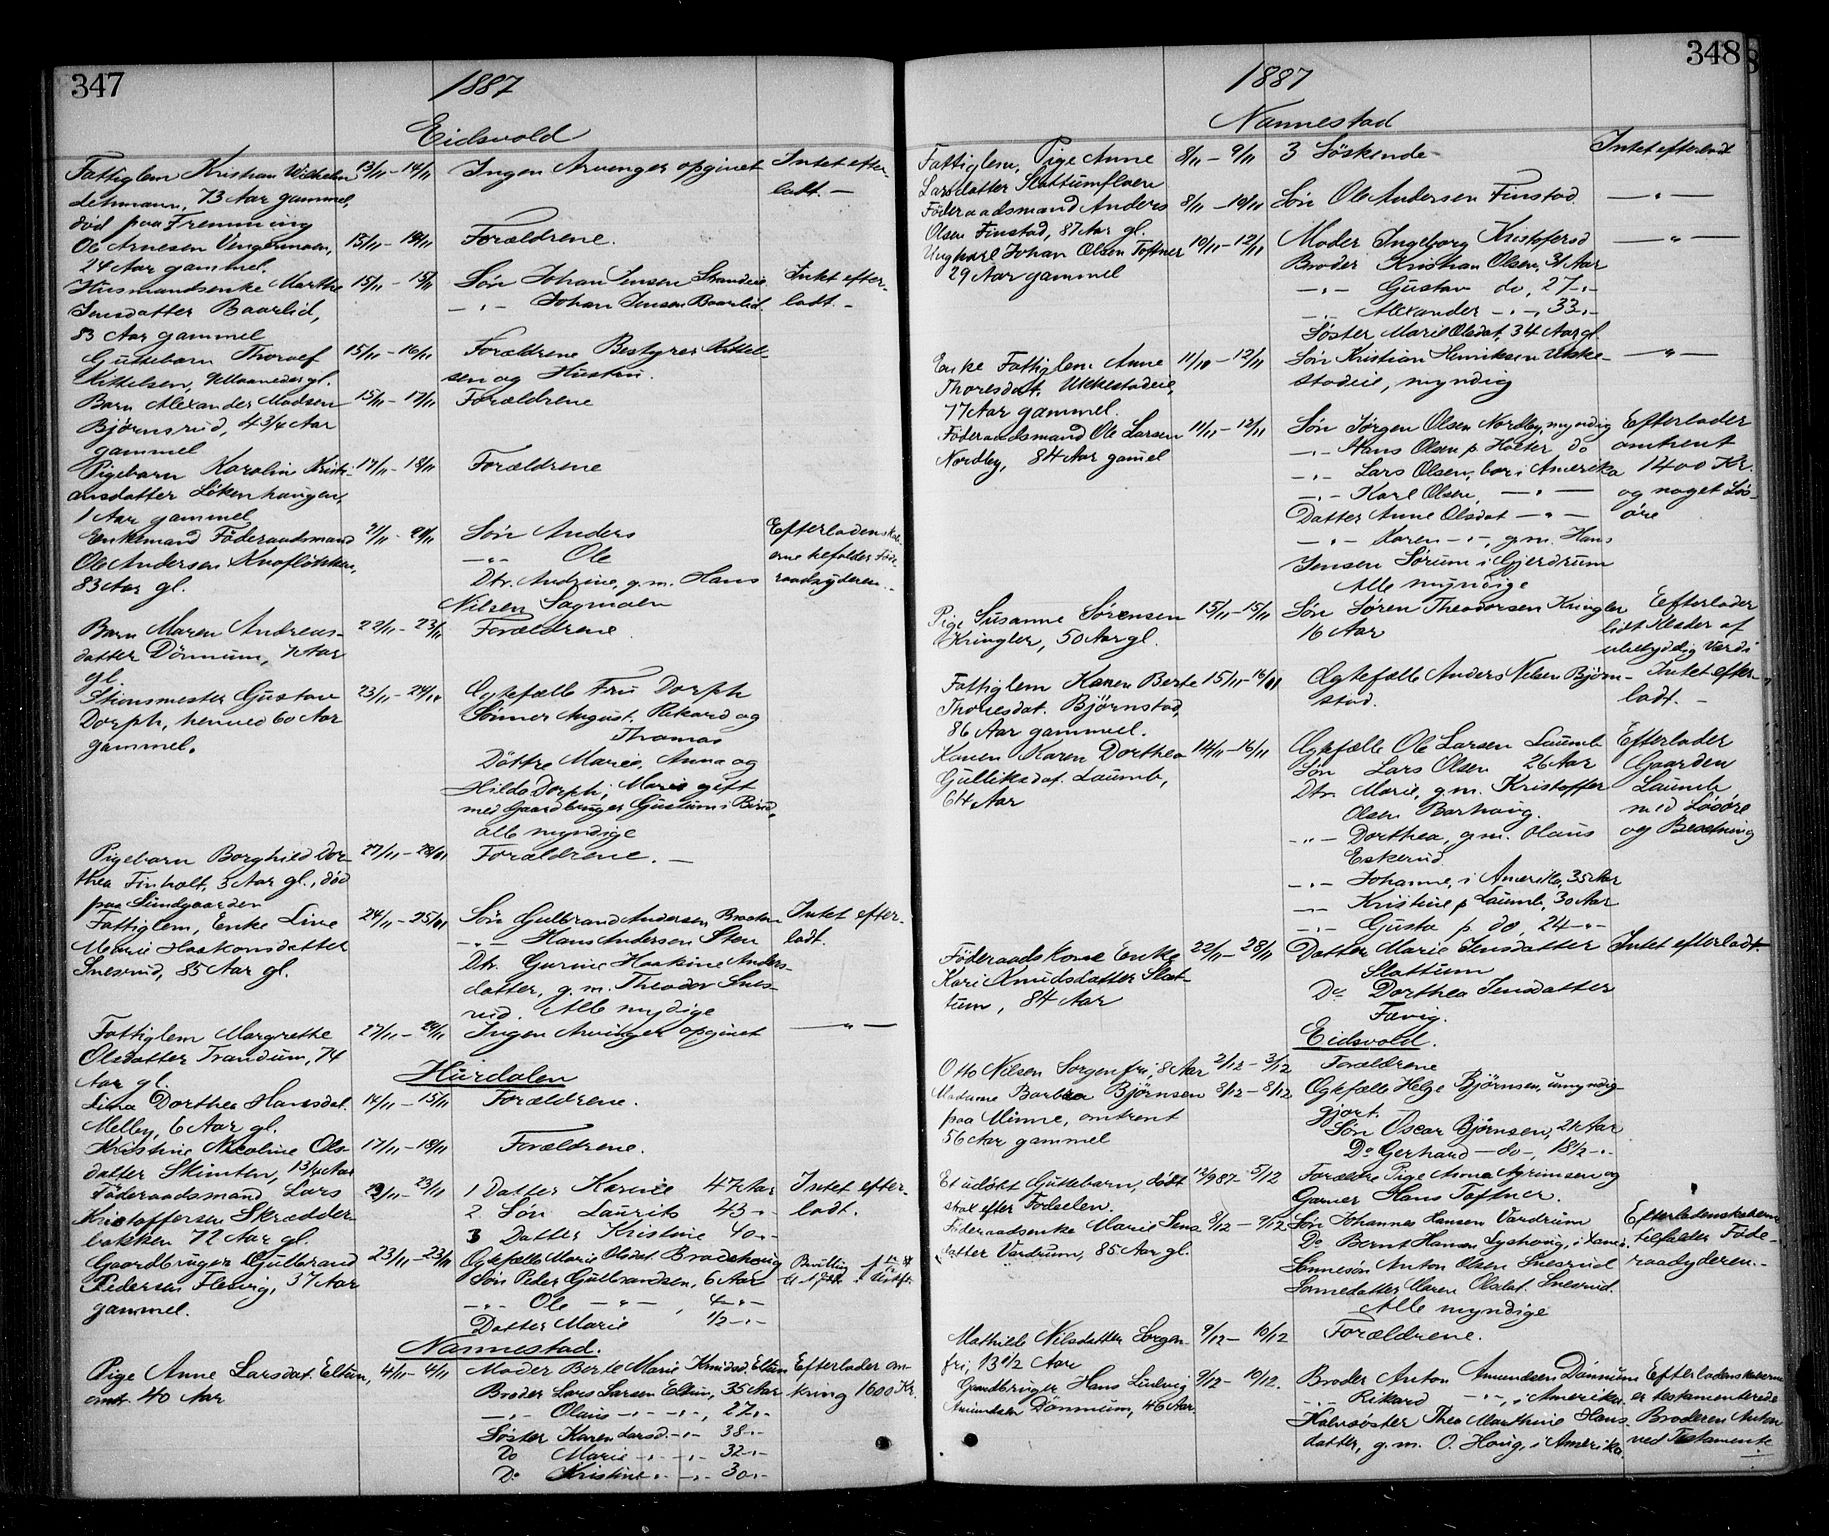 347
1887
Eidsvold
Fattiglem Kristian Wilhelm 13/11 - 14/11 Ingen Arvinger opgivet Intet efter-
Lehmann, 73 Aar gammel, ladt. —
død paa Fremming
Ole Arnesen Vengenmoen, 15/11 - 18/11 Forældrene.
24 Aar gammel.
Husmandsenke Marthe 15/11 - 15/11 Søn Johan Jensen Intet efter-
Jensdatter Baarlid, — „ — Johan Jensen Baarlid. ladt. -
83 Aar gammel
Guttebarn Thoralf 15/11 - 16/11 Forældrene Bestyrer Kittel-
Kittelsen, Maaneder gl. sen og Hustru.
Barn Alexander Madsen 15/11 - 17/11 Forældrene
Bjørnsrud, 4 3/4 Aar
gammel
Pigebarn Karoline Kristi- 17/11 - 18/11 Forældrene
ansdatter Løkenhaugen,
1 Aar gammel
Enkemand Føderaadsmand 21/11 - 21/11 Søn Anders Efterladenskab-
Ole Andersen Knofløkken, — „ — Ole erne befalder Føde-
83 Aar gl. Dtr. Andrine, g.m. Hans raadsyderen.
Nilsen Sagmoen
Barn Maren Andreas- 22/11 - 23/11 Forældrene.
datter Dønnum, Aar
gl.
Stionsmester Gustav 23/11 - 24/11 Ægtefælle Fru Dorph
Dorph, henved 60 Aar Sønner August, Rikard og
gammel. Thomas
Døttre Marie, Anna og
Hilda Dorph; Marie gift
med Gaardbruger
alle myndige
Pigebarn Borghild Dor- 27/11 - 28/11 Forældrene. —
thea Finholt, 3 Aar gl., død
paa Sundgaarden
Fattiglem, Enke Line 24/11 - 25/11 Søn Gulbrand Andersen, Intet efter-
Marie Haakonsdatter — „ — Hans Andersen Sten ladt.
Snesrud, 85 Aar gl. Dtr. Gurine Haakine Anders-
datter, g.m. Theodor Snes-
rud. Alle mydige
Fattiglem Margrethe 27/11 - 29/11 Ingen Arvinger opgivet — „ —
Olsdatter Trandum, 74
Aar gl.
Hurdalen
Lina Dorthea Hansdat. 14/11 - 15/11 Forældrene.
Melby, 6 Aar gl.
Kristine Nicoline Ols- 17/11 - 18/11 Forældrene.
datter Skimten, 1 3/4 Aar
Føderaadsmand Lars 23/11 - 23/11 1 Datter Karine 47 Aar Intet efter-
Kristoffersen Skrædder- 2 Søn Laurits 43 -„- ladt.
bakken 72 Aar gl. 3 Datter Kristine 40 -„-
Gaardbruger Gulbrand 23/11 - 23/11 Ægtefælle Marie Olsdat. Brodshaug
Pedersen Flesvig, 37 Aar Søn Peder Gulbrandsen, 6 Aar
gammel. — „ — Ole — „ — , 4 -„-
Datter Marie 1/2 -„-
Nannestad.
Pige Anne Larsdat. Eltun, 4/11 - 4/11 Moder Berte Marie Knudsd. Eltun Efterlader om-
omtr. 40 Aar Broder Lars Larsen Eltun, 35 Aar kring 1600 Kr.
— „ — Olaus -„- -„-, 27 -„-
Søster Karen Larsd. -„- 38 -„-
Do Marie -„- -„- 32 -„-
Do Kristine -„- -„- 30 -„-
348
1887
Nannestad
Fattiglem, Pige Anne 8/11 - 9/11 3 Søskende Intet efterladt
Larsdatter Slattumfloen
Føderaadsmand Anders 8/11 - 10/11 Søn Ole Andersen Finstad — „ —
Olsen Finstad, 87 Aar gl.
Ungkarl Johan Olsen Toftner 10/11 - 12/11 Moder Ingeborg Kristofersd — „ —
29 Aar gammel Broder Kristian Olsen, 31 Aar
— „ — Gustav do, 27 -„-
— „ — Alexander -„-, 33 -„-
Søster Marie Olsdat, 34 Aar gl.
Enke Fattiglem Anne 11/10 - 12/11 Søn Kristian Henriksen Ukke- — „ —
Thoresdat. Ukkestadeie, stadeie, myndig
77 Aar gammel.
Føderaadsmand Ole Larsen 11/11 - 12/11 Søn Jørgen Olsen Nordby, myndig Efterlader
Nordby, 84 Aar gamel — „ — Hans Olsen p. Holter do omtrent
— „ — Lars Olsen, bor i Amerika 1400 Kr.
— „ — Karl Olsen, — „ — og noget Løs-
Datter Anne Olsdat — „ — øre
— „ — Karen -„-, g.m. Hans
Jensen Sørum i Gjerdrum
Alle myndige
Pige Susanne Sørensen 15/11 - 15/11 Søn Søren Theodorsen Kringler Efterlader
Kringler, 50 Aar gl. 16 Aar lidt Klæder af
ubetydelig Værdi
Fattiglem Konen Berte 15/11 - 16/11 Ægtefælle Anders Nilsen Bjørn- Intet efter-
Thoresdat. Bjørnstad, stad. ladt. -
86 Aar gammel.
Konen Karen Dorthea 14/11 - 16/11 Ægtefælle Ole Larsen Laumb Efterlader
Gulliksdat. Laumb, Søn Lars Olsen 26 Aar Gaarden
64 Aar Dtr. Marie, g.m. Kristoffer Laumb
Olsen Borhaug. med Løsøre
— „ — Dorthea, g.m. Olaus og Besetning
Eskerud
— „ — Johanne, i Amerika, 35 Aar
— „ — Kristine p Laumb, 30 Aar
— „ — Gusta p. do, 24 -„-
Føderaadskone Enke 22/11 - 28/11 Datter Marie Jensdatter Intet efterladt
Kari Knudsdatter Slat- Slattum
tum, 84 Aar Do Dorthea Jensdatter
Fævig.
Eidsvold.
Otto Nilsen Sorgenfri, 8 Aar 2/12 - 3/12 Forældrene
Madame Barbra Bjørnsen 8/12 - 8/12 Ægtefælle Helge Bjørnsen, umyndig-
paa Minne, omtrent gjort.
56 Aar gammel Søn Oscar Bjørnsen, 21 Aar
Do Gerhard -do-, 18 1/2 -„-
Et udøbt Guttebarn, dødt 5/12 Forældre Pige Anna Agrimsen og
strax efter Fødselen. Garver Hans Toftner.
Føderaadsenke Marie Jens- 8/12 - 9/12 Søn Johannes Hansen Vardrum Efterladenskaberne
datter Vardrum, 85 Aar gl. Do Bernt Hansen Lyshaug, i tilfalder Føde-
Sønnesøn Anton Olsen Snesrud raadyderen. -
Sønnedatter Karen Olsdat. Snesrud.
Alle myndige
Mathilde Nilsdatter Sorgen- 9/12 - 10/12 Forældrene.
fri, 13 1/2 Aar
Gaardbruger Hans Ludvig 9/12 - 10/12. Broder Anton Amundsen Dønnum Efterladenskaberne
Amundsen Dønnum, 46 Aar. — „ — Rikard -„-, i Amerika er testamenterede
Halvsøster Thea Marthine Hans- Broderen Anton
datter, g.m. O. Haug, i Amerika. ved Testamente